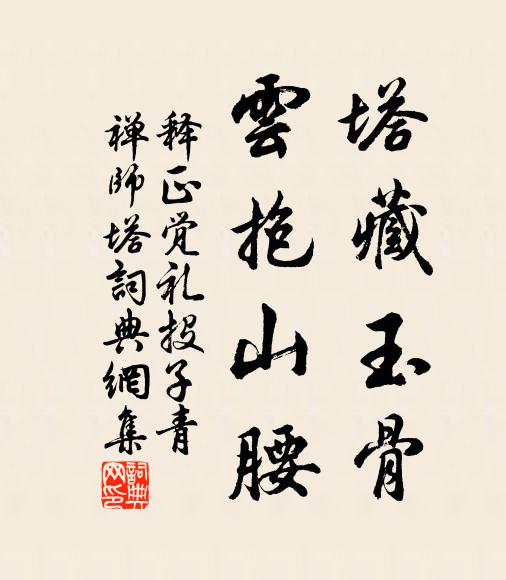 塔藏玉骨
雲抱山腰
释正觉礼投子青
禅師塔詞典網集
詞典网印